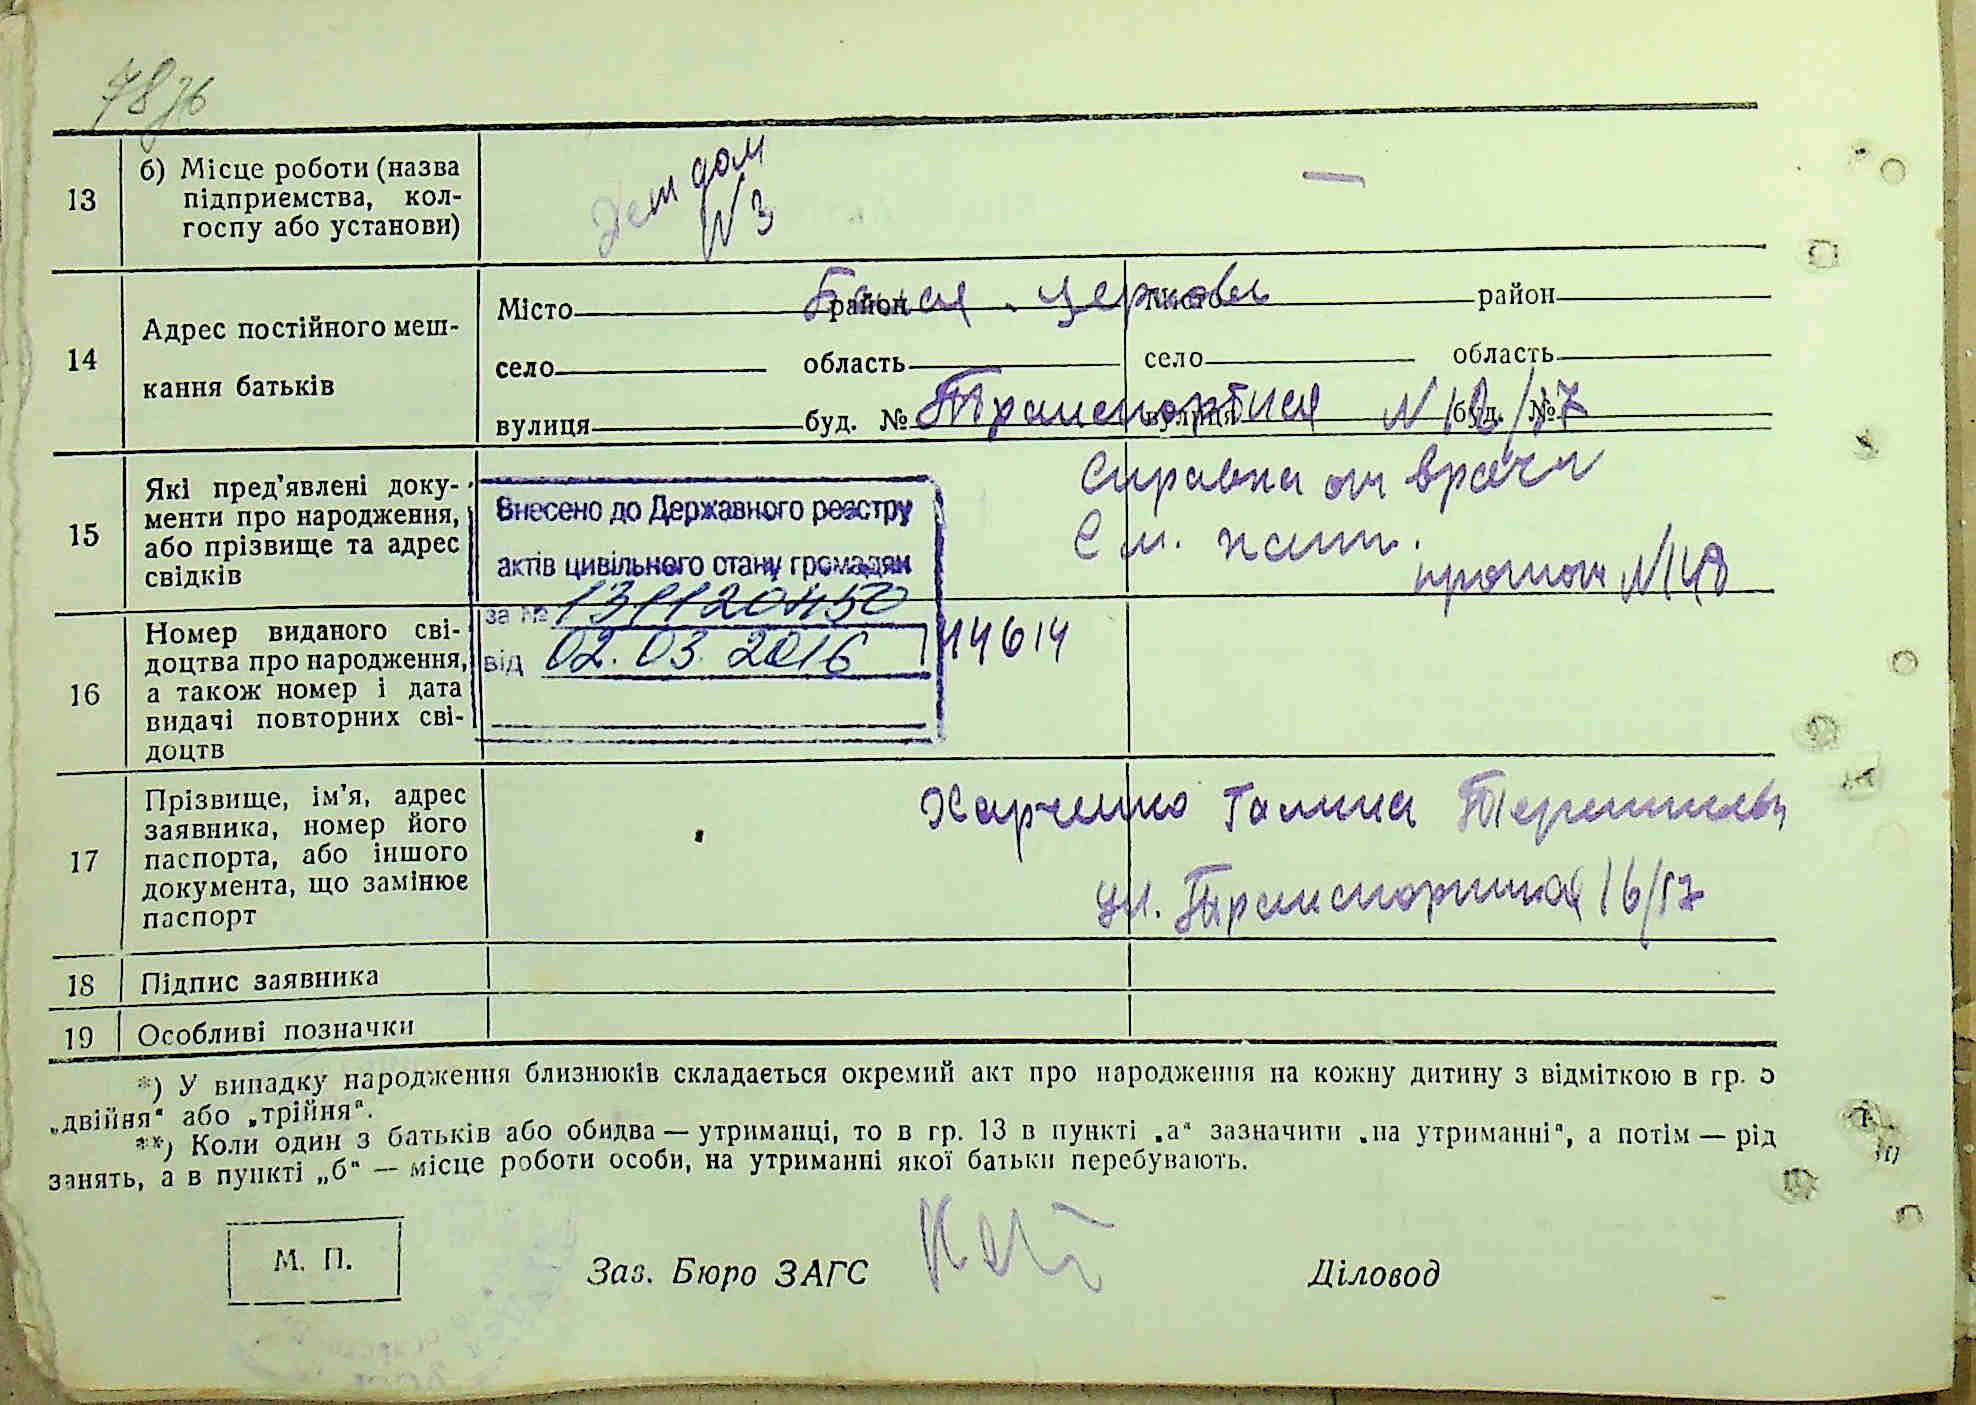 78
13
б) Місце роботи (назва
підприємства, кол-
госпу або установи)
Дет дом
№ 3
—
14
Адрес постійного меш-
кання батьків
Місто район Місто район
Белая Церковь
село область село область
вулиця буд. № вулиця буд. №
Транспортная №
15
Які пред'явлені доку-
менти про народження,
або прізвище та адрес
свідків
Справка от врача
См. пат.
протокол № 148
Внесено до Державного реєстру
актів цивільного стану громадян
за №
від 02.03.2016
16
Номер виданого сві-
доцтва про народження,
а також номер і дата
видачі повторних сві-
доцтв
14614
17
Прізвище, ім'я, адрес
заявника, номер його
паспорта, або іншого
документа, що замінює
паспорт
Харченко Галина
ул. Транспортная 16/17
18
Підпис заявника
19
Особливі позначки
*) У випадку народження близнюків складається окремий акт про народження на кожну дитину з відміткою в гр. 5
„двійня" або „трійня".
**) Коли один з батьків або обидва — утриманці, то в гр. 13 в пункті „а" зазначити „на утриманні", а потім — рід
занять, а в пункті „б" — місце роботи особи, на утриманні якої батьки перебувають.
М. П.
Зав. Бюро ЗАГС
Діловод